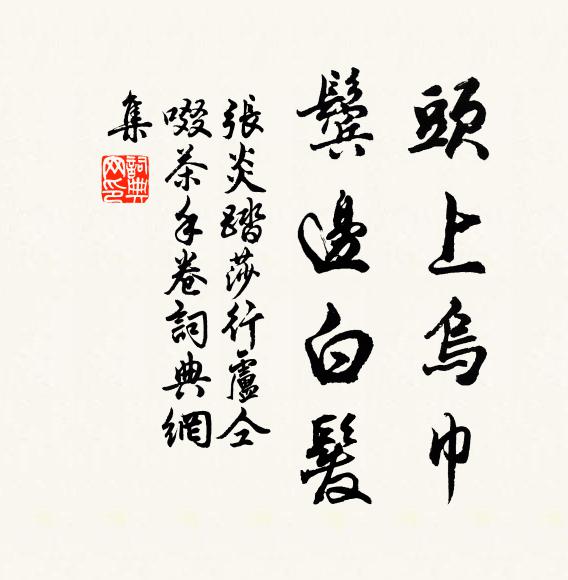 頭上烏巾
鬢邊白髮
張炎踏莎行盧仝
啜茶手卷詞典網
集
詞典網印